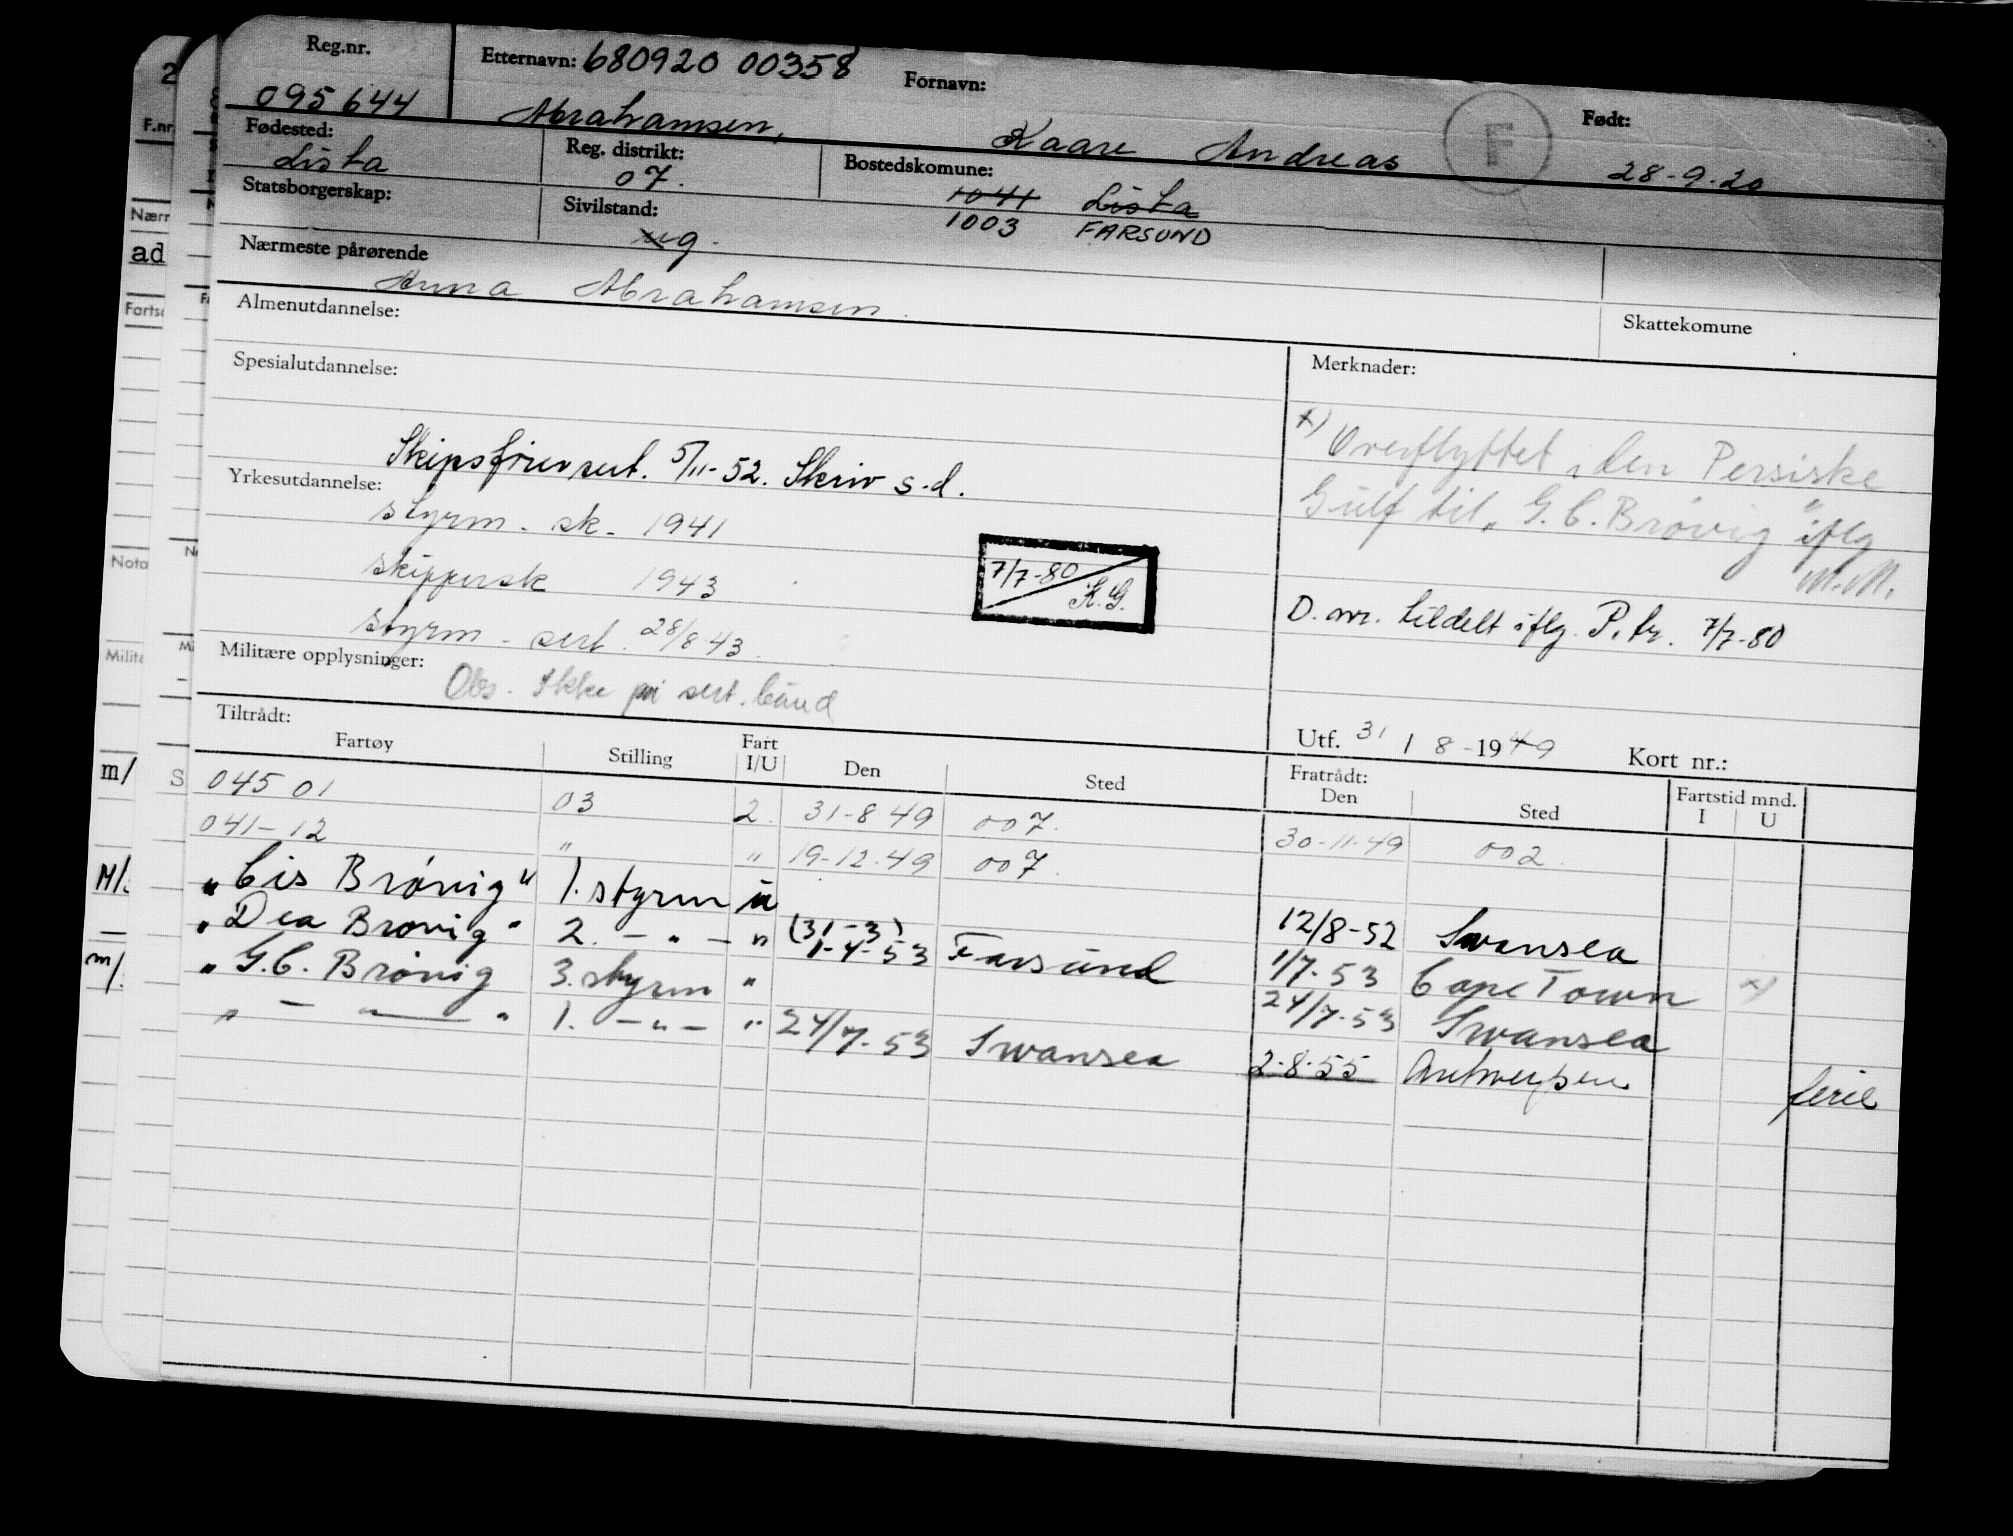 Reg.nr. Etternavn: 680920 00358 Fornavn: Født:
095644 Abrahamsen, Kaare Andreas F 28-9-20
Fødested: Reg. distrikt: Bostedskomune:
Lista 07. 1041 Lista
Statsborgerskap: Sivilstand: 1003 FARSUND
ug.
Nærmeste pårørende
Anna Abrahamsen.
Almenutdannelse: Skattekomune
Spesialutdannelse: Merknader:
x) Overflyttet i den Persiske
Skipsførersert. 5/11-52. Skriv s.d. Gulf til „G.C. Brøvig" iflg
Yrkesutdannelse: M.M.
styrm. sk. 1941
7/7-80 K.G.
skippersk 1943
D. nr. tildelt iflg. P.kr. 7/7-80
styrm. sert. 28/8 43.
Militære opplysninger:
Obs. Ikke på sert. bånd
Tiltrådt: Utf. 31 / 8 - 1949 Kort nr.:
Fartøy Stilling Fart I/U Den Sted Fratrådt: Den Sted Fartstid mnd. I U
045 01 03 2. 31-8 49 007. 30-11-49 002
041-12 " " 19-12-49 007.
„Cis Brøvig" 1. styrm u 12/8-52 Swansea
„Dea Brøvig" 2. - " - " (31-3) 1-4-53 Farsund 1/7-53 Cape Town x)
„G.C. Brøvig 3. styrm " 24/7-53 Swansea
" - — " 1. - " - " 24/7-53 Swansea 2-8-55 Antwerpen ferie
2
F.nr
Nærr
ad
Fartsø
Nota
Milita
m/ S
M/.
—
m/.